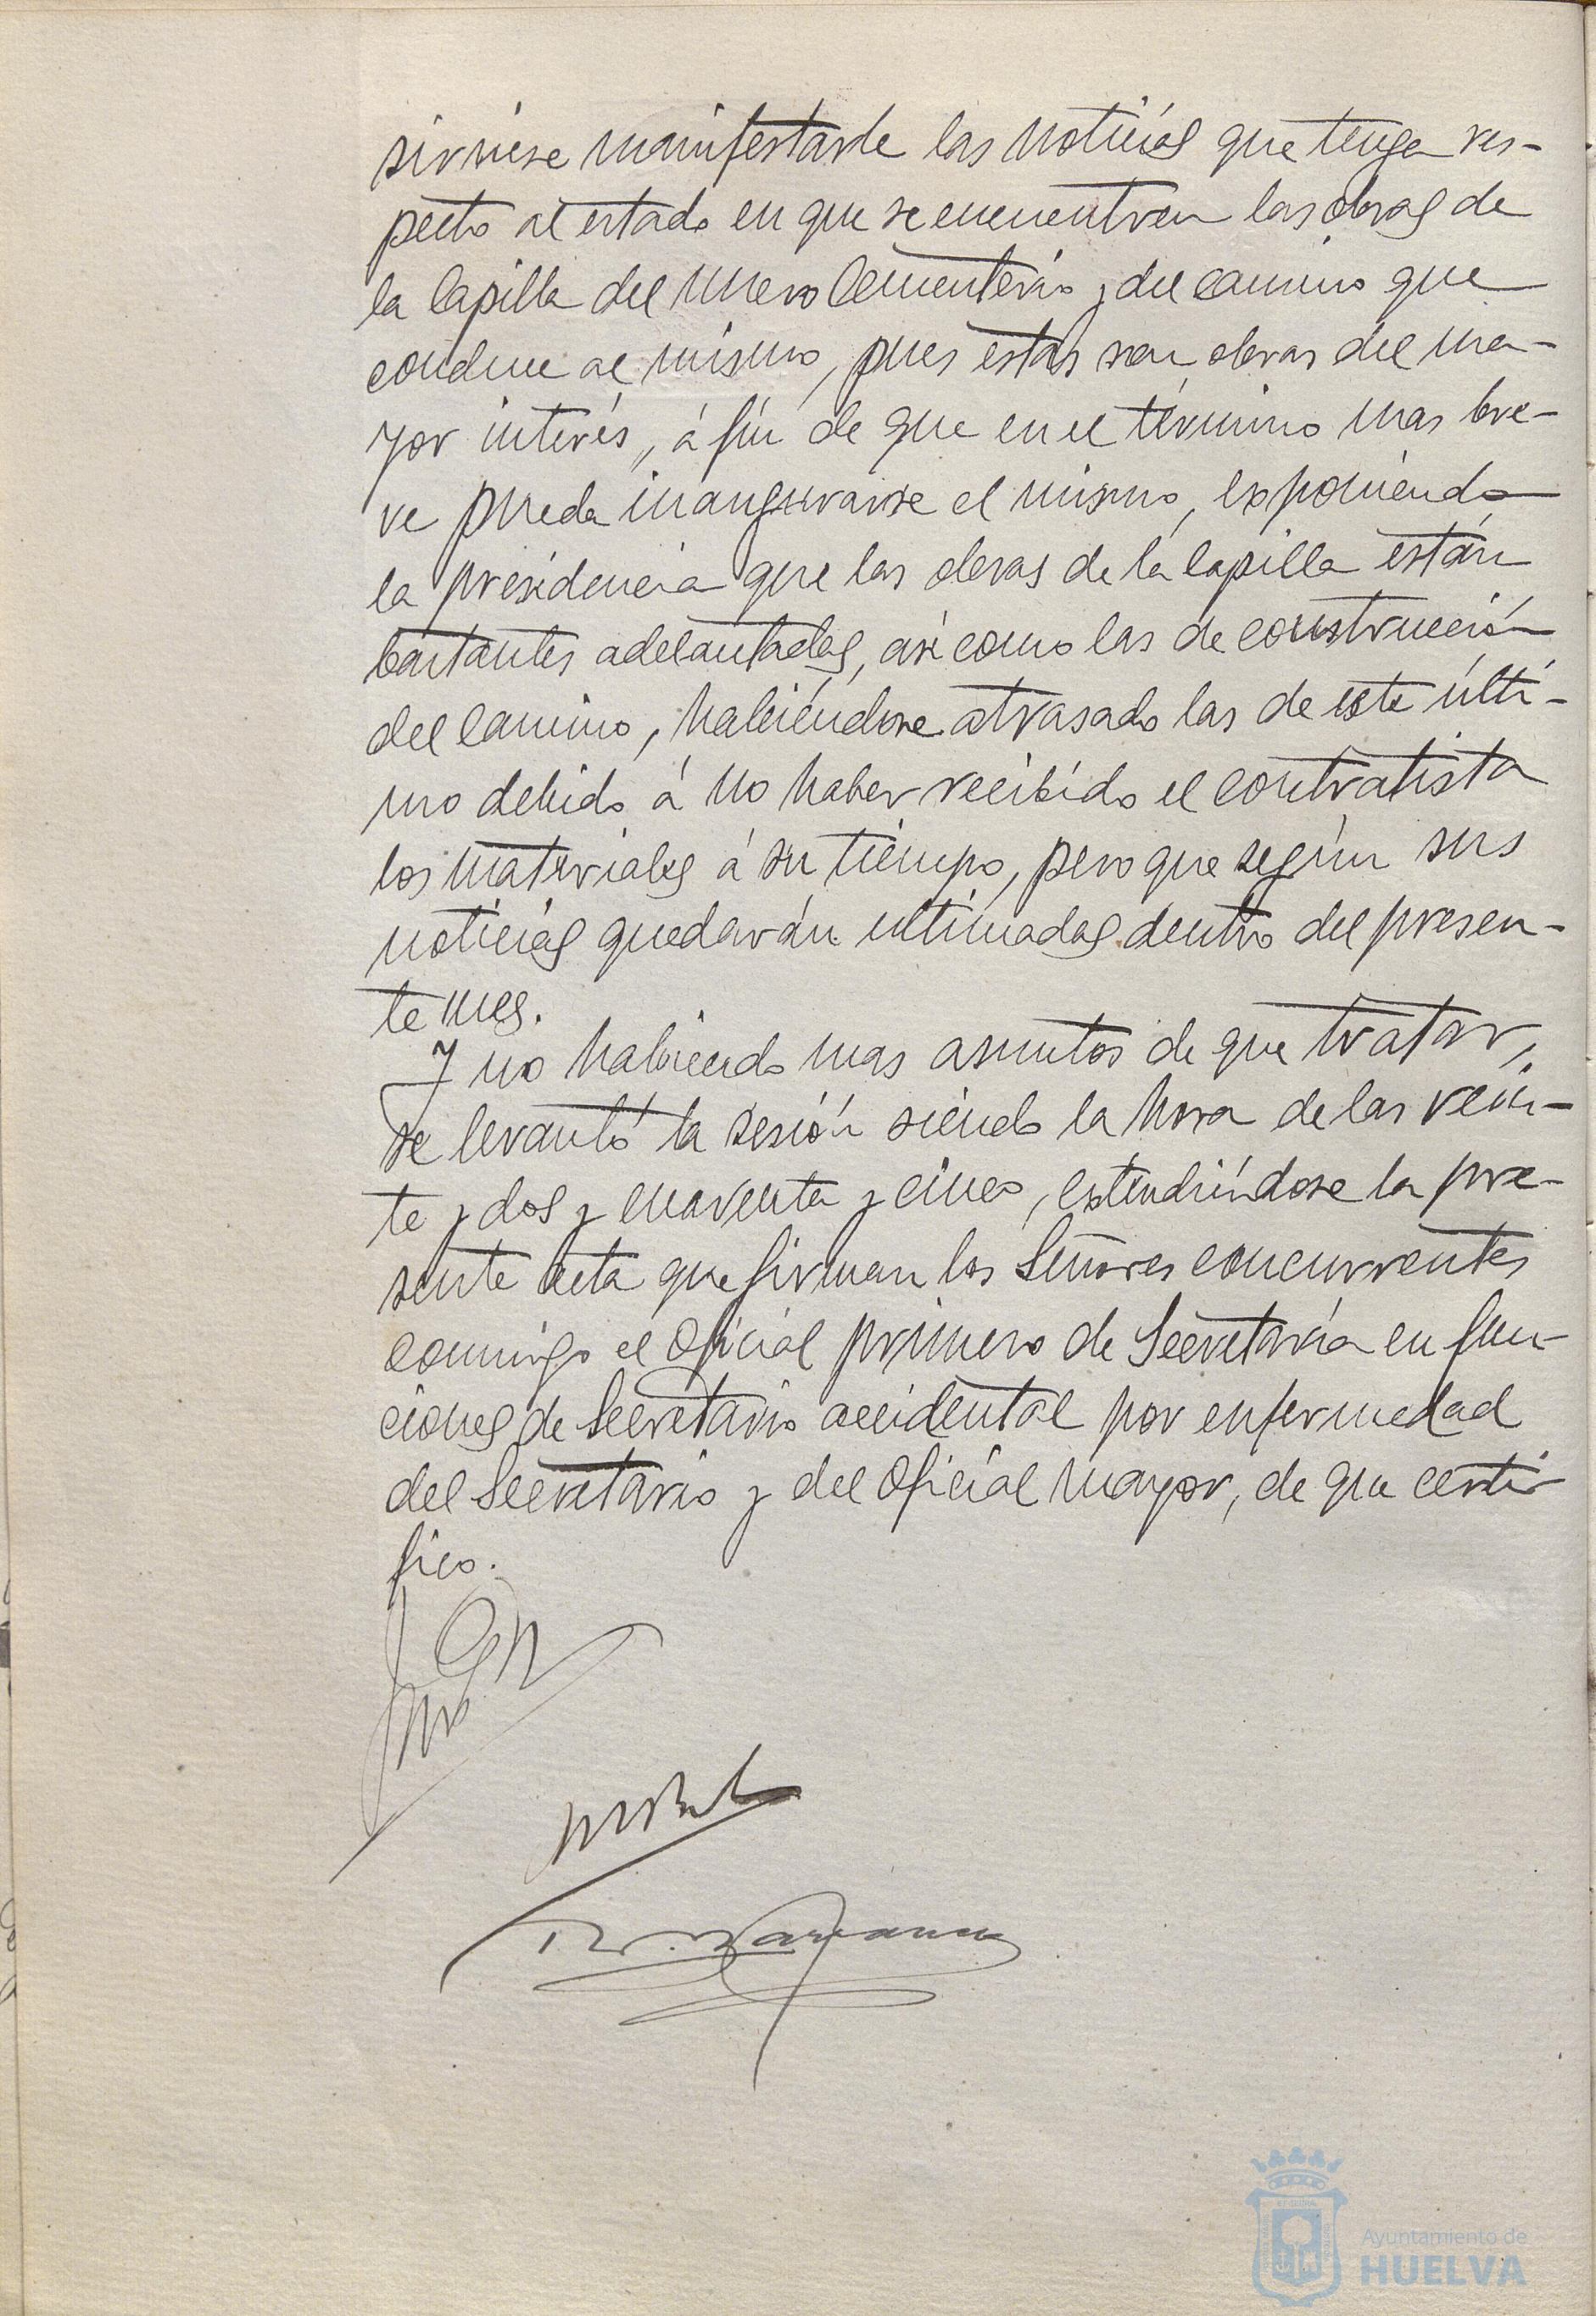 sirviese manifestarle las noticias que tenga res-
pecto al estado en que se encuentran las obras de
la Capilla del nuevo Cementerio y del camino que
conduce al mismo, pues estas son obras del ma-
yor interés, á fin de que en el término mas bre-
ve pueda inaugurarse el mismo, exponiendo
la presidencia que las obras de la Capilla están
bastantes adelantadas, asi como las de construcción
del camino, habiéndose atrasado las de este últi-
mo debido á no haber recibido el contratista
los materiales á su tiempo, pero que según sus
noticias quedarán ultimadas dentro del presen-
te mes.
Y no habiendo mas asuntos de que tratar,
se levantó la sesión siendo la hora de las vein-
te y dos y cuarenta y cinco, extendiéndose la pre-
sente acta que firman los Señores concurrentes
conmigo el Oficial primero de Secretaría en fun-
ciones de Secretario accidental por enfermedad
del Secretario y del Oficial mayor, de que certi-
fico.
Ayuntamiento de
HUELVA